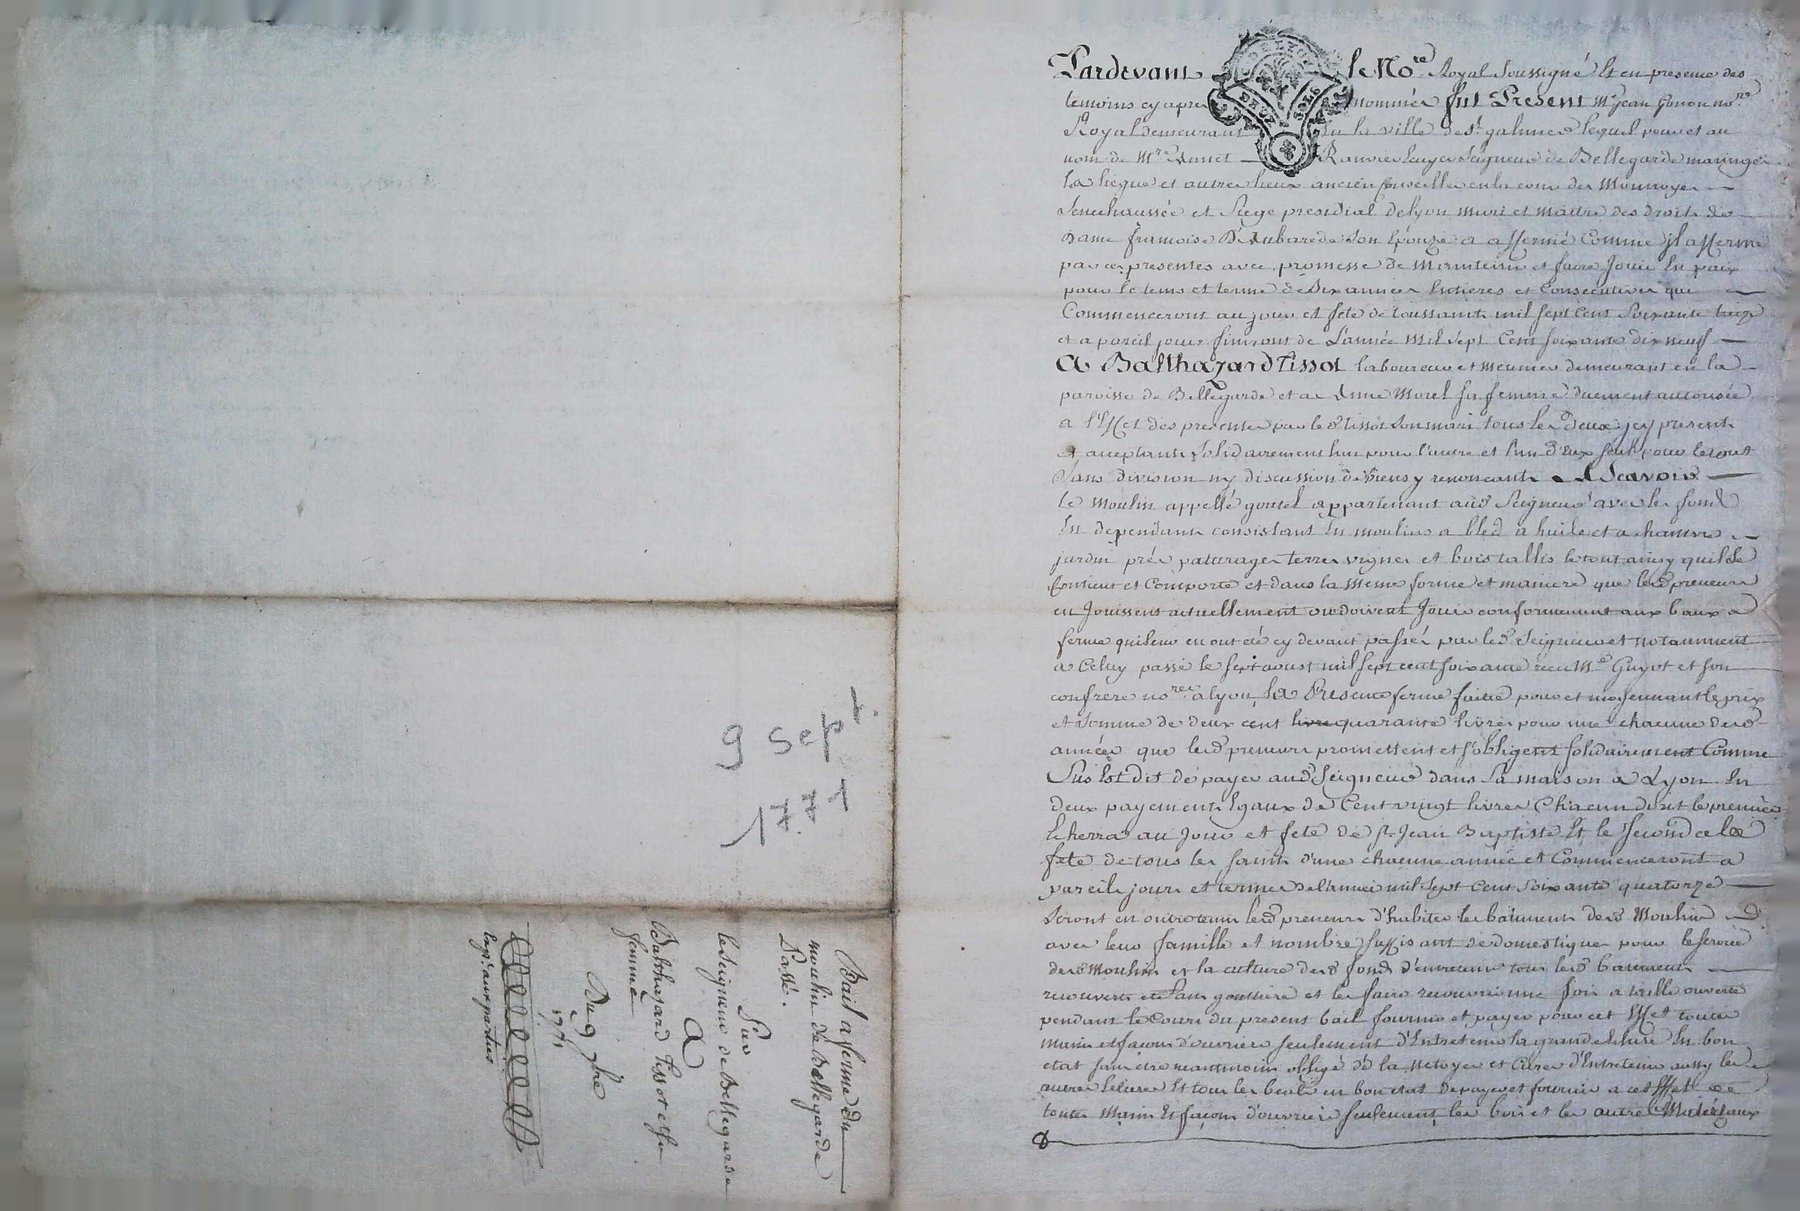 9 Sept.
1771
Bail a ferme du
moulin de Bellegarde
Passé.
Par
le seigneur de Bellegarde
A
Balthazard Tissot et sa
femme
Du 9 7bre
1771
DE LYON
DEUX SOLS
Pardevant le Nore Royal soussigné Et en presence des
temoins cy apres nommés fut Present Me Jean Gonon nore
Royal demeurant En la ville de St galmier lequel pour et au
nom de Mre Ranvier Seigneur de Bellegarde maringe
La liegue et autres lieux ancien Conseiller en la cour des Monnoyes
Senechaussée et Siege presidial de lyon mari et maitre des droits de
Dame françoise Son Epouze a affermé Comme Jl afferme
par ces presentes avec promesse de Maintenir et faire Jouir En paix
pour le tems et terme de Six années Entieres et Consecutives qui
Commenceront au jour et fete de toussaints mil sept cent soixante treize
et a pareil jour finiront de L'année Mil sept Cent soixante dix neuf
A Balthazard Tissot laboureur et Meunier demeurant en la
paroisse de Bellegarde et a Anne Morel sa femme duement autorisée
a l'Effet des presentes par led Tissot son mari tous les deux jcy presents
et acceptants solidairement l'un pour l'autre et l'un d'Eux seul pour le tout
Sans division ny discussion de biens y renonçants Scavoir
Le Moulin appellé goutel appartenant aud Seigneur avec les fonds
En dependants consistant En moulins a bled a huile et a chanvre
jardin prés paturages terres vignes et bois taillis le tout ainsy quil se
Contient et Comporte et dans la meme forme et maniere que lesd preneurs
en Jouissent actuellement ou doivent Jouir conformement aux baux a
ferme quileur en ont été cy devant passés par led Seigneur et notamment
a Celuy passé le sept aoust mil sept cent soixante reçu Me Guyot et son
confrere nores a lyon La Presente ferme faitte pour et moyennant le prix
et somme de deux cent livre quarante livres pour une chacune desd
années que lesd preneurs promettent et s'obligent solidairement Comme
Sus Est dit de payer aud Seigneur dans sa maison a Lyon En
deux payements Egaux de Cent vingt livres Chacun dont le premier
Echerra au jour et fete de St Jean Baptiste Et le second a la
fete de tous les saints d'une chacune année et Commenceront a
pareils jours et termes de l'année mil sept cent soixante quatorze
Seront en outre tenus lesd preneurs d'habiter les batiments desd Moulins
avec leur famille et nombre suffisant de domestiques pour le service
desd Moulins et la culture desd fonds d'entretenir tous lesd batiments
recouverts et sans gouttiere et les faire recouvrir une fois a taille ouverte
pendant le Cours du present bail fournir et payer pour cet Effet toutes
mains et façons d'ouvriers seulement d'Entretenir la grande Ecluse En bon
etat sans etre neanmoins obligé de la netoyer et Curer d'Entretenir aussy les
autres Ecluses Et tous les en bon etat de payer et fournir a cet Effet
toutes Mains Et façons d'ouvriers seulement les bois et les autres Materiaux